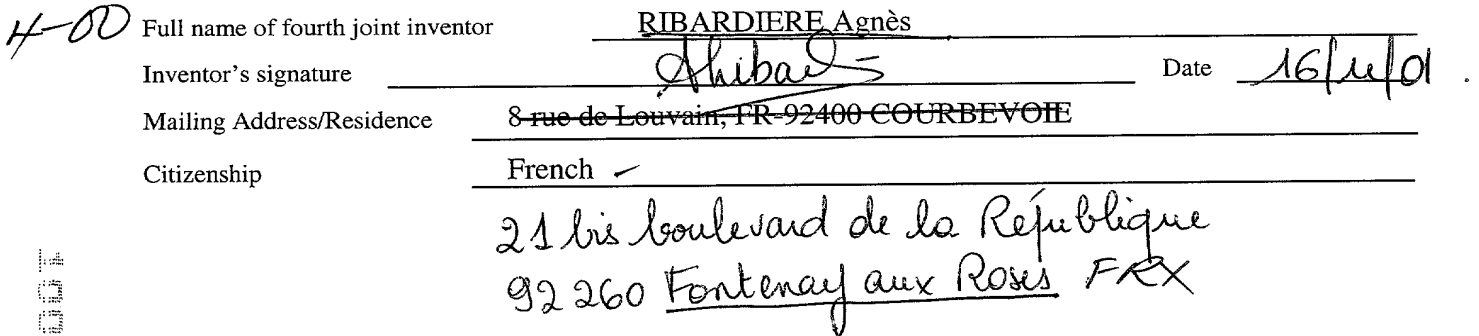 4-00 Full name of fourth joint inventor RIBARDIERE Agnès
Inventor's signature Date 16/11/01 .
Mailing Address/Residence 8 rue de Louvain, FR-92400 COURBEVOIE
Citizenship French
21 bis boulevard de la République
92 260 Fontenay aux Roses FRX